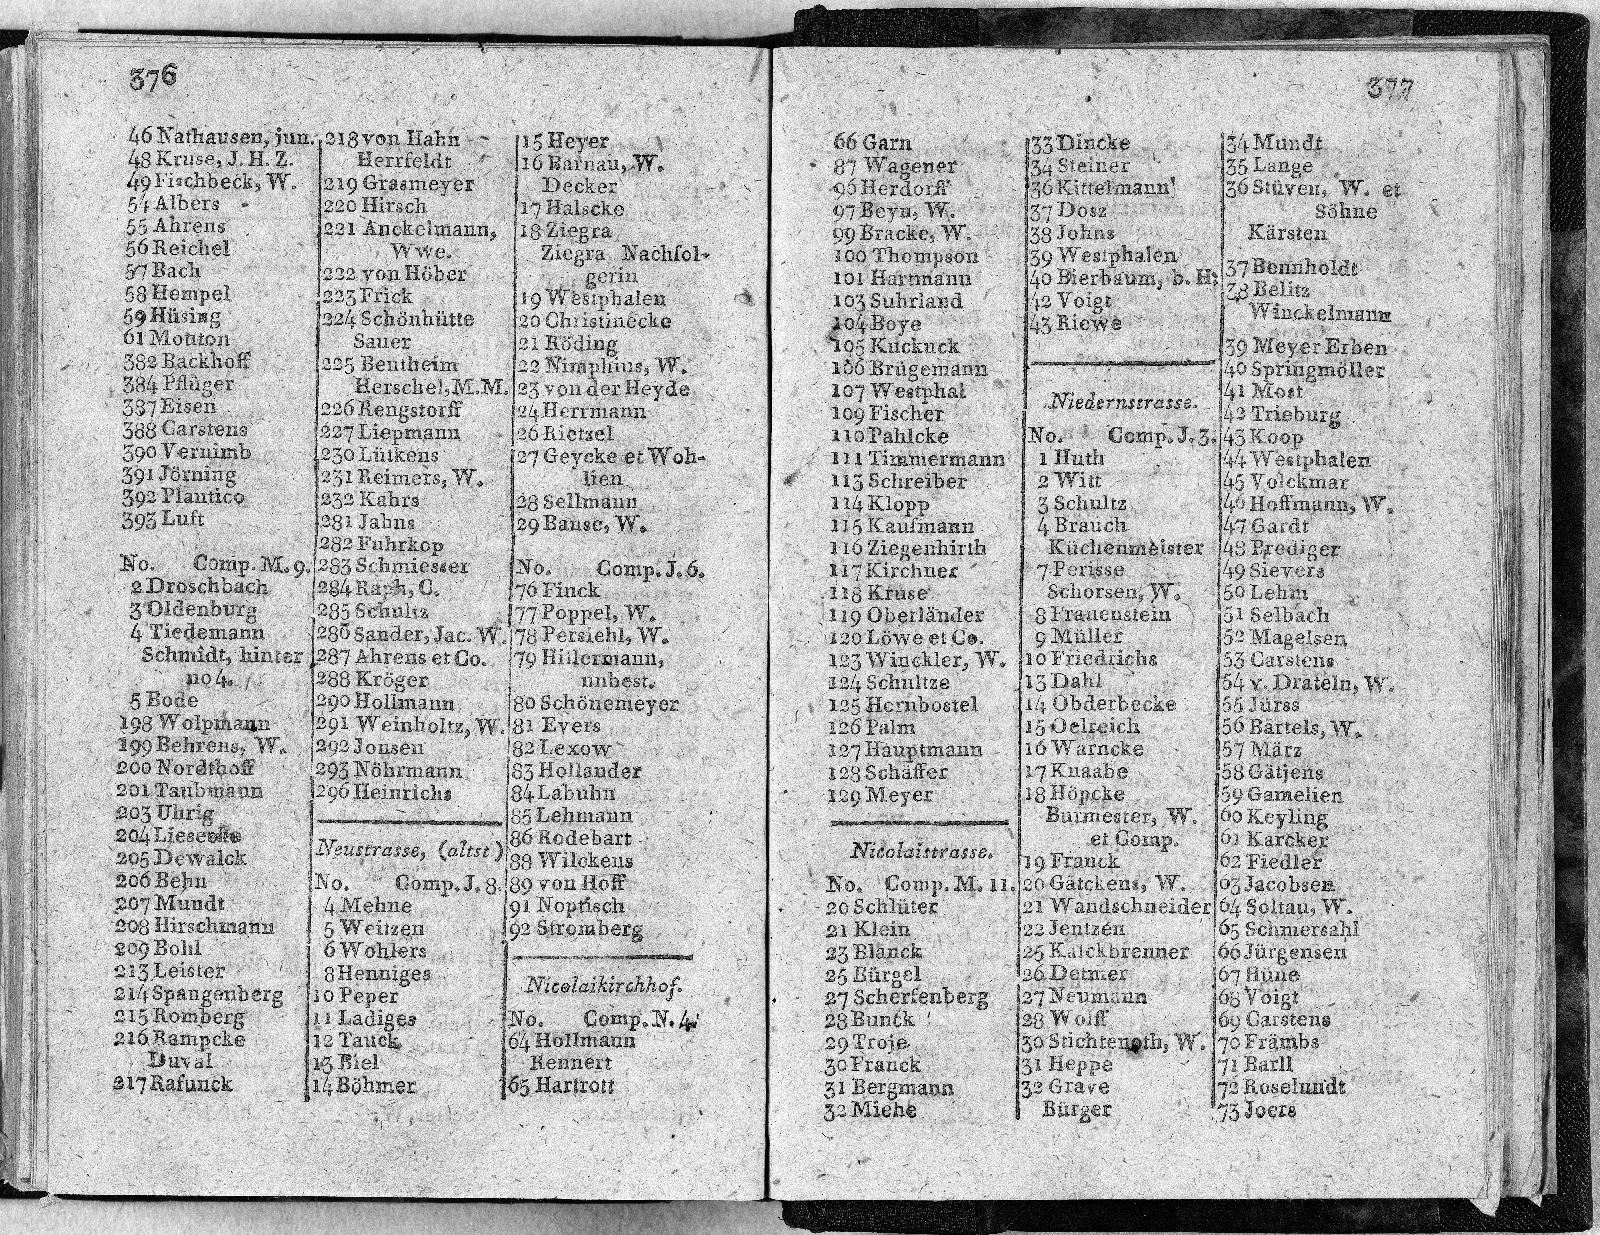 376
46 Nathausen, jun.
48 Kruse, J. H. Z.
49 Fischbeck, W.
54 Albers
55 Ahrens
56 Reichel
57 Bach
58 Hempel
59 Hüsing
61 Mouton
382 Backhoff
384 Pflüger
387 Eisen
388 Carstens
390 Vernimb
391 Jörning
392 Plautico
393 Luft
No. Comp. M. 9.
2 Droschbach
3 Oldenburg
4 Tiedemann
Schmidt, hinter
no 4.
5 Bode
198 Wolpmann
199 Behrens, W.
200 Nordthoff
201 Taubmann
203 Uhrig
204
205 Dewalck
206 Behn
207 Mundt
208 Hirschmann
209 Bohl
213 Leister
214 Spangenberg
215 Romberg
216 Rampcke
Duval
217 Rafunck
218 von Hahn
Herrfeldt
219 Grasmeyer
220 Hirsch
221 Anckelmann,
Wwe.
222 von Höber
223 Frick
224 Schönhütte
Sauer
225 Bentheim
Herschel, M. M.
226 Rengstorff
227 Liepmann
230 Lütkens
231 Reimers, W.
232 Kahrs
281 Jahns
282 Fuhrkop
283 Schmiesser
284 Raph, C.
285 Schultz
286 Sander, Jac. W.
287 Ahrens et Co.
288 Kröger
290 Hollmann
291 Weinholtz, W.
292 Jonsen
293 Nöhrmann
296 Heinrichs
Neustrasse, (altst)
No. Comp. J. 8.
4 Mehne
5 Weitzen
6 Wohlers
8 Henniges
10 Peper
11 Ladiges
12 Tauck
13 Biel
14 Böhmer
15 Heyer
16 Barnau, W.
Decker
17 Halscke
18 Ziegra
Ziegra Nachfol-
gerin
19 Westphalen
20 Christinecke
21 Röding
22 Nimphius, W.
23 von der Heyde
24 Herrmann
26 Rietzel
27 Geycke et Woh-
lien
28 Sellmann
29 Banse, W.
No. Comp. J. 6.
76 Finck
77 Poppel, W.
78 Persiehl, W.
79 Hillermann,
unbest.
80 Schönemeyer
81 Evers
82 Lexow
83 Hollander
84 Labuhn
85 Lehmann
86 Rodebart
88 Wilckens
89 von Hoff
91 Noptisch
92 Stromberg
Nicolaikirchhof.
No. Comp. N. 4.
64 Hollmann
Rennert
65 Hartrott
377
66 Garn
87 Wagener
96 Herdorff
97 Beyn, W.
99 Bracke, W.
100 Thompson
101 Hartmann
103 Suhrland
104 Boye
105 Kuckuck
106 Brügemann
107 Westphal
109 Fischer
110 Pahlcke
111 Timmermann
113 Schreiber
114 Klopp
115 Kaufmann
116 Ziegenhirth
117 Kirchner
118 Kruse
119 Oberländer
120 Löwe et Co.
123 Winckler, W.
124 Schultze
125 Hernbostel
126 Palm
127 Hauptmann
128 Schäffer
129 Meyer
Nicolaistrasse.
No. Comp. M. 11.
20 Schlüter
21 Klein
23 Blanck
25 Bürgel
27 Scherfenberg
28 Bunck
29 Troje
30 Franck
31 Bergmann
32 Miehe
33 Dincke
34 Steiner
36 Kittelmann
37 Dosz
38 Johns
39 Westphalen
40 Bierbaum, b. H.
42 Voigt
43 Riewe
Niedernstrasse.
No. Comp. J. 3.
1 Huth
2 Witt
3 Schultz
4 Brauch
Küchenmeister
7 Perisse
Schorsen, W.
8 Frauenstein
9 Müller
10 Friedrichs
13 Dahl
14 Obderbecke
15 Oelreich
16 Warncke
17 Knaabe
18 Höpcke
Burmester, W.
et Comp.
19 Franck
20 Gätckens, W.
21 Wandschneider
22 Jentzen
25 Kalckbrenner
26 Detmer
27 Neumann
28 Wolff
30 Stichtenoth, W.
31 Heppe
32 Grave
Bürger
34 Mundt
35 Lange
36 Stüven, W. et
Söhne
Kärsten
37 Bennholdt
38 Belitz
Winckelmann
39 Meyer Erben
40 Springmöller
41 Most
42 Trieburg
43 Koop
44 Westphalen
45 Volckmar
46 Hoffmann, W.
47 Gardt
48 Prediger
49 Sievers
50 Lehm
51 Selbach
52 Magelsen
53 Carstens
54 v. Drateln, W.
55 Jürss
56 Bartels, W.
57 März
58 Gätjens
59 Gamelien
60 Keyling
61 Karcker
62 Fiedler
63 Jacobsen
64 Soltau, W.
65 Schmersahl
66 Jürgensen
67 Hüne
68 Voigt
69 Carstens
70 Främbs
71 Barll
72 Roselundt
73 Joers